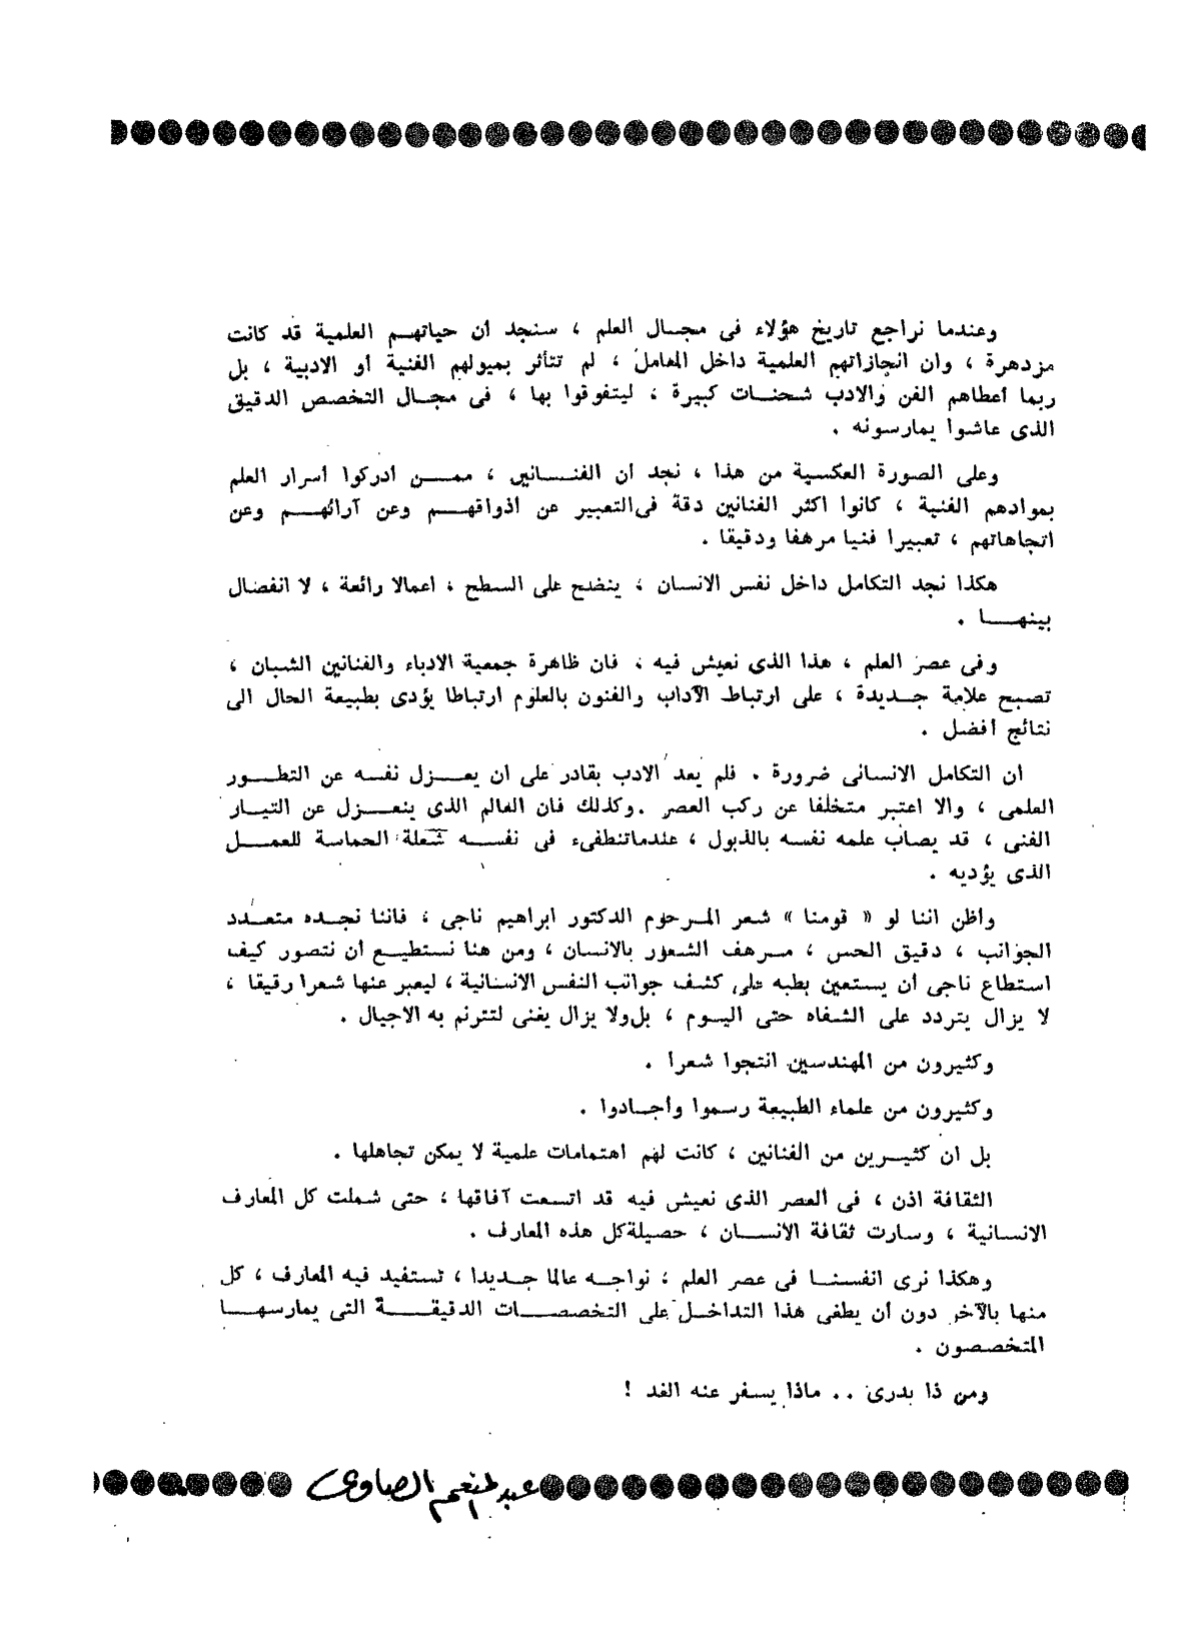 وعندما نراجع تاريخ هؤلاء فى مجال العلم ، سنجد أن حياتهم العلمية قد كانت
مزدهرة ، وان انجازاتهم العلمية داخل المعامل ، لم تتأثر بميولهم الفنية أو الادبية ، بل
ربما أعطاهم الفن والادب شحنات كبيرة ، ليتفوقوا بها ، فى مجال التخصص الدقيق
الذى عاشوا يمارسونه .
وعلى الصورة العكسية من هذا ، نجد أن الفنانين ، ممن أدركوا أسرار العلم
بموادهم الفنية ، كانوا أكثر الفنانين دقة فى التعبير عن أذواقهم وعن آرائهم وعن
اتجاهاتهم ، تعبيرا فنيا مرهفا ودقيقا .
هكذا نجد التكامل داخل نفس الانسان ، ينضح على السطح ، اعمالا رائعة ، لا انفصال
بينها .
وفى عصر العلم ، هذا الذى نعيش فيه ، فان ظاهرة جمعية الادباء والفنانين الشبان ،
تصبح علامة جديدة ، على ارتباط الآداب والفنون بالعلوم ارتباطا يؤدى بطبيعة الحال الى
نتائج أفضل .
ان التكامل الانسانى ضرورة . فلم يعد الادب بقادر على أن يعزل نفسه عن التطور
العلمى ، والا اعتبر متخلفا عن ركب العصر . وكذلك فان العالم الذى ينعزل عن التيار
الفنى ، قد يصاب علمه نفسه بالذبول ، عندما تنطفىء فى نفسه شعلة الحماسة للعمل
الذى يؤديه .
وأظن اننا لو « قومنا » شعر المرحوم الدكتور ابراهيم ناجى ، فاننا نجده متعدد
الجوانب ، دقيق الحس ، مرهف الشعور بالانسان ، ومن هنا نستطيع أن نتصور كيف
استطاع ناجى أن يستعين بطبه على كشف جوانب النفس الانسانية ، ليعبر عنها شعرا رقيقا ،
لا يزال يتردد على الشفاه حتى اليوم ، بل ولا يزال يغنى لتترنم به الاجيال .
وكثيرون من المهندسين انتجوا شعرا .
وكثيرون من علماء الطبيعة رسموا وأجادوا .
بل ان كثيرين من الفنانين ، كانت لهم اهتمامات علمية لا يمكن تجاهلها .
الثقافة اذن ، فى العصر الذى نعيش فيه قد اتسعت آفاقها ، حتى شملت كل المعارف
الانسانية ، وسارت ثقافة الانسان ، حصيلة كل هذه المعارف .
وهكذا نرى انفسنا فى عصر العلم ، نواجه عالما جديدا ، تستفيد فيه المعارف ، كل
منها بالآخر دون أن يطغى هذا التداخل على التخصصات الدقيقة التى يمارسها
المتخصصون .
ومن ذا يدرى .. ماذا يسفر عنه الغد !
عبد المنعم الصاوى